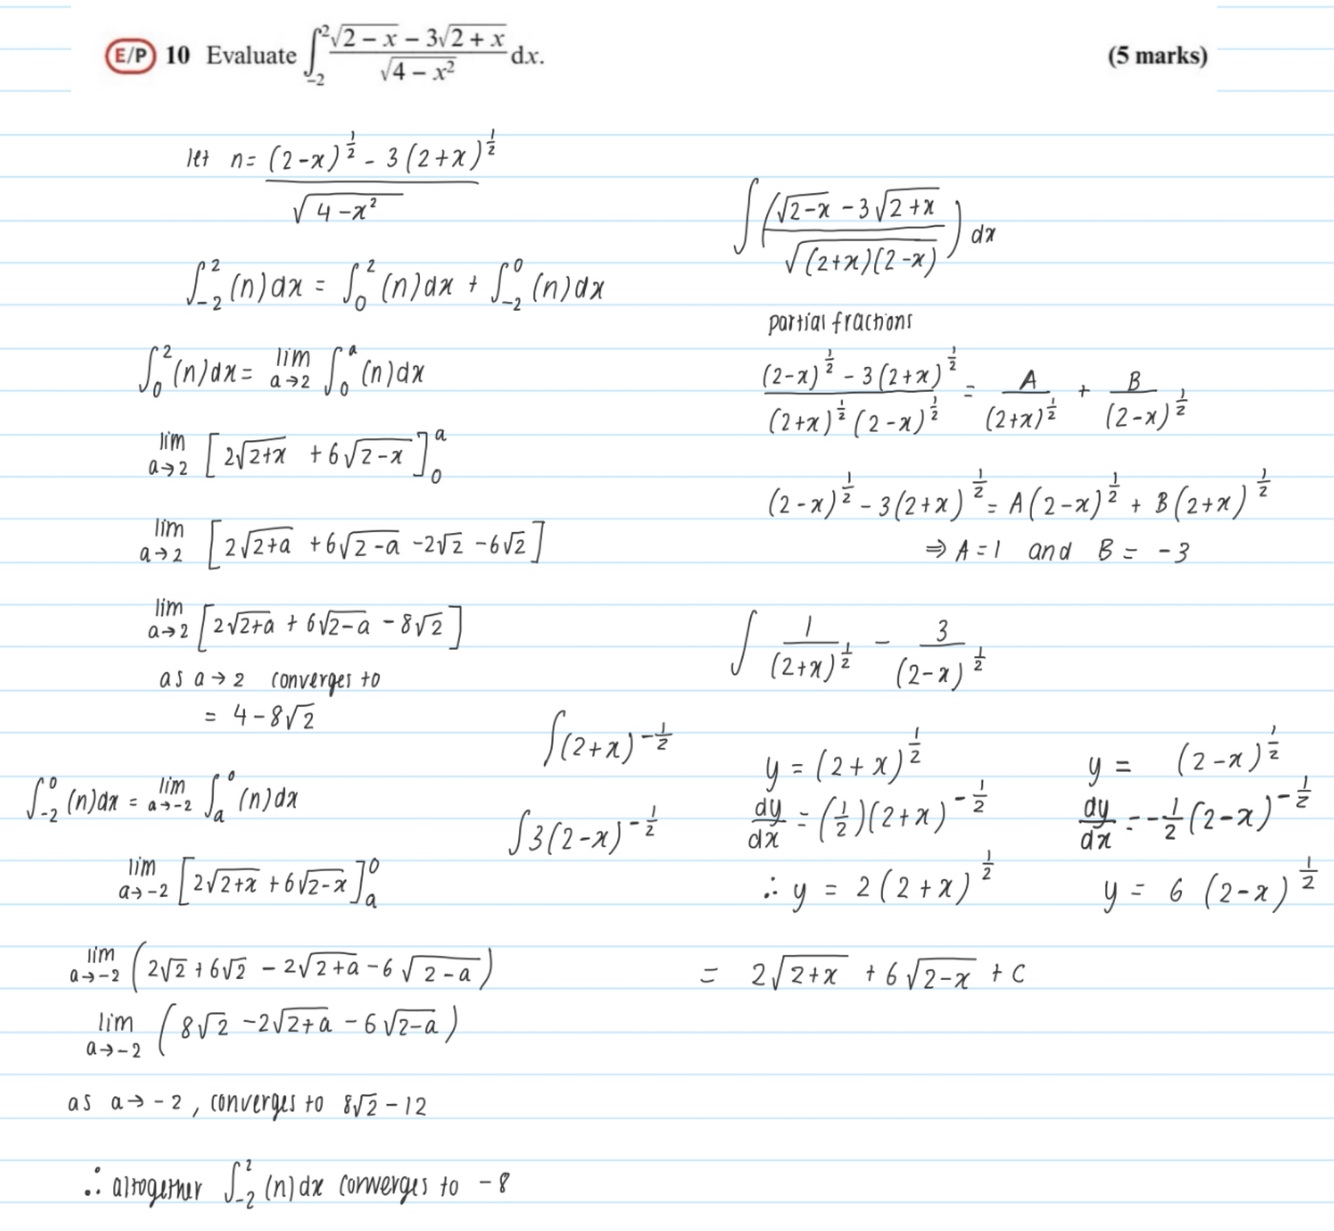 E/P 10 Evaluate ∫_{-2}^{2} (√(2 − x) − 3√(2 + x))/√(4 − x²) dx. (5 marks)
let n = ((2-x)^{1/2} - 3(2+x)^{1/2})/√(4-x²)
∫_{-2}^{2} (n)dx = ∫_{0}^{2} (n)dx + ∫_{-2}^{0} (n)dx
∫_{0}^{2} (n)dx = lim_{a→2} ∫_{0}^{a} (n)dx
lim_{a→2} [2√(2+x) + 6√(2-x)]_{0}^{a}
lim_{a→2} [2√(2+a) + 6√(2-a) - 2√2 - 6√2]
lim_{a→2} [2√(2+a) + 6√(2-a) - 8√2]
as a→2 converges to
= 4 - 8√2
∫_{-2}^{0} (n)dx = lim_{a→-2} ∫_{a}^{0} (n)dx
lim_{a→-2} [2√(2+x) + 6√(2-x)]_{a}^{0}
lim_{a→-2} (2√2 + 6√2 - 2√(2+a) - 6√(2-a))
lim_{a→-2} (8√2 - 2√(2+a) - 6√(2-a))
as a→-2, converges to 8√2 - 12
∴ altogether ∫_{-2}^{2} (n)dx converges to -8
∫ ((√(2-x) - 3√(2+x))/√((2+x)(2-x))) dx
partial fractions
((2-x)^{1/2} - 3(2+x)^{1/2})/((2+x)^{1/2}(2-x)^{1/2}) = A/(2+x)^{1/2} + B/(2-x)^{1/2}
(2-x)^{1/2} - 3(2+x)^{1/2} = A(2-x)^{1/2} + B(2+x)^{1/2}
⇒ A=1 and B = -3
∫ 1/(2+x)^{1/2} - 3/(2-x)^{1/2}
∫(2+x)^{-1/2}
∫3(2-x)^{-1/2}
y = (2+x)^{1/2}
dy/dx = (1/2)(2+x)^{-1/2}
∴ y = 2(2+x)^{1/2}
y = (2-x)^{1/2}
dy/dx = -1/2(2-x)^{-1/2}
y = 6(2-x)^{1/2}
= 2√(2+x) + 6√(2-x) + c